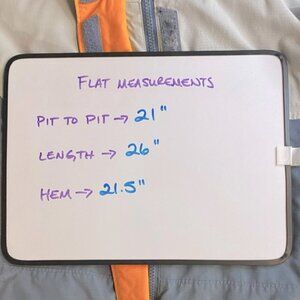 FLAT MEASUREMENTS
PIT TO PIT → 21"
LENGTH → 26"
HEM → 21.5"